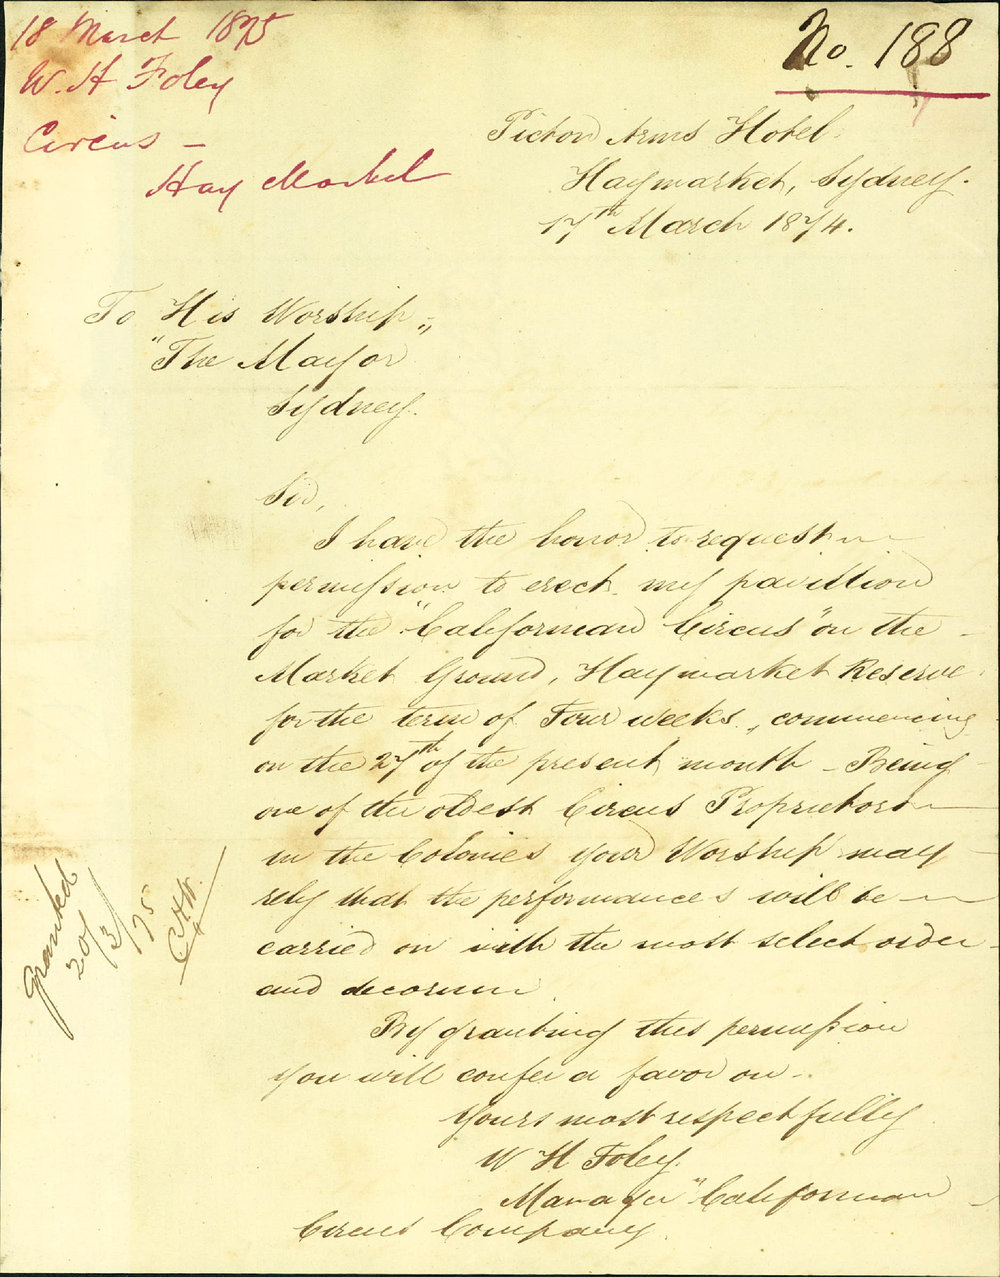 18 March 1875
W. H Foley
Circus –
Hay Market
No. 188
Picton Arms Hotel.
Haymarket, Sydney.
17th March 1874.
To His Worship„
"The Mayor
Sydney.
Sir,
I have the honor to request
permission to erect my pavillion
for the "Californian Circus" on the
Market Ground, Haymarket Reserve
for the term of Four weeks, commencing
on the 27th of the present month – Being
one of the oldest Circus Proprietors
in the Colonies your Worship may
rely that the performances will be
carried on with the most select order
and decorum
By granting this permission
you will confer a favor on.
Yours most respectfully
W H Foley.
Manager "Californian
Circus Company.
Granted
20/3/75